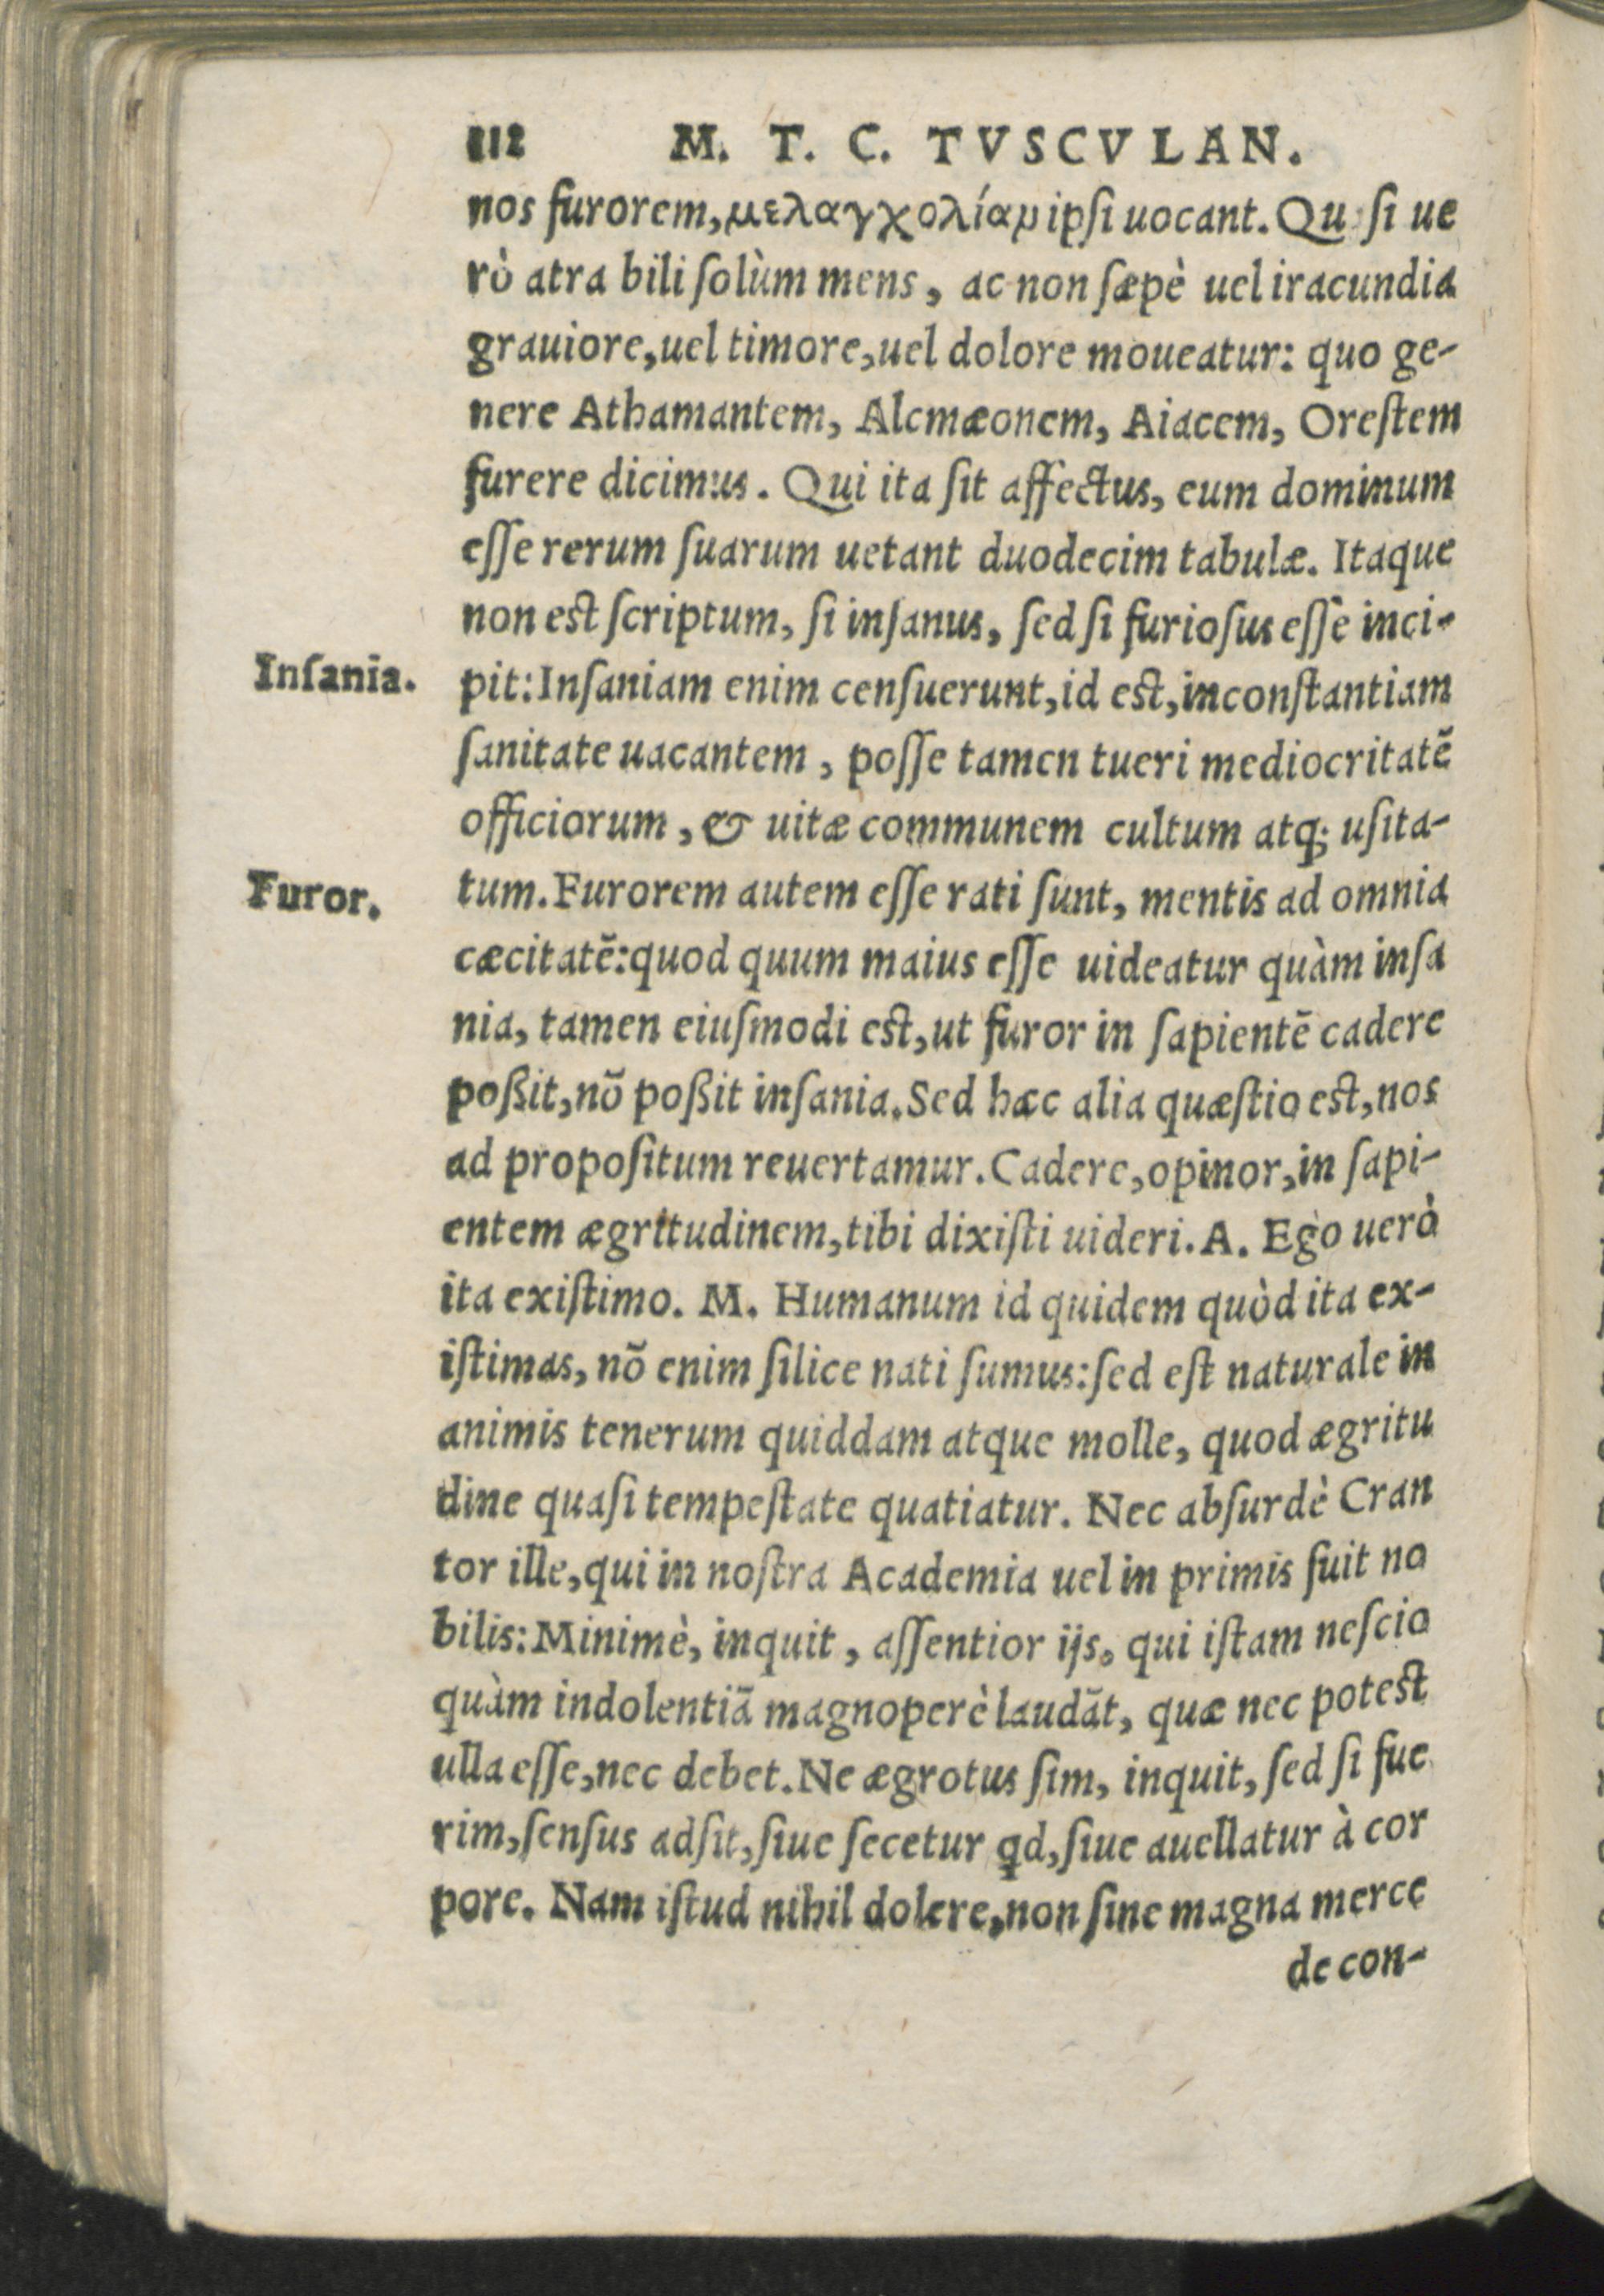 112 M. T. C. TVSCVLAN.
nos furorem, μελαγχολίαν ipſi uocant. Qu ſi ue
rò atra bili ſolùm mens, ac non ſæpè uel iracundia
grauiore, uel timore, uel dolore moueatur: quo ge-
nere Athamantem, Alcmæonem, Aiacem, Oreſtem
furere dicimus. Qui ita ſit affectus, eum dominum
eſſe rerum ſuarum uetant duodecim tabulæ. Itaque
non est ſcriptum, ſi inſanus, ſed ſi furioſus eſſe inci-
Inſania.
pit: Inſaniam enim cenſuerunt, id est, inconſtantiam
ſanitate uacantem, poſſe tamen tueri mediocritatẽ
officiorum, & uitæ communem cultum atq; uſita-
Furor.
tum. Furorem autem eſſe rati ſunt, mentis ad omnia
cæcitatẽ: quod quum maius eſſe uideatur quàm inſa
nia, tamen eiuſmodi est, ut furor in ſapientẽ cadere
poßit, nõ poßit inſania. Sed hæc alia quæſtio est, nos
ad propoſitum reuertamur. Cadere, opinor, in ſapi-
entem ægritudinem, tibi dixiſti uideri. A. Ego uerò
ita exiſtimo. M. Humanum id quidem quòd ita ex-
iſtimas, nõ enim ſilice nati ſumus: ſed eſt naturale in
animis tenerum quiddam atque molle, quod ægritu
dine quaſi tempeſtate quatiatur. Nec abſurdè Cran
tor ille, qui in noſtra Academia uel in primis fuit no
bilis: Minimè, inquit, aſſentior ijs, qui iſtam neſcio
quàm indolentiã magnoperè laudãt, quæ nec potest
ulla eſſe, nec debet. Ne ægrotus ſim, inquit, ſed ſi fue
rim, ſenſus adſit, ſiue ſecetur qd, ſiue auellatur à cor
pore. Nam iſtud nihil dolere, non ſine magna merce
de con-